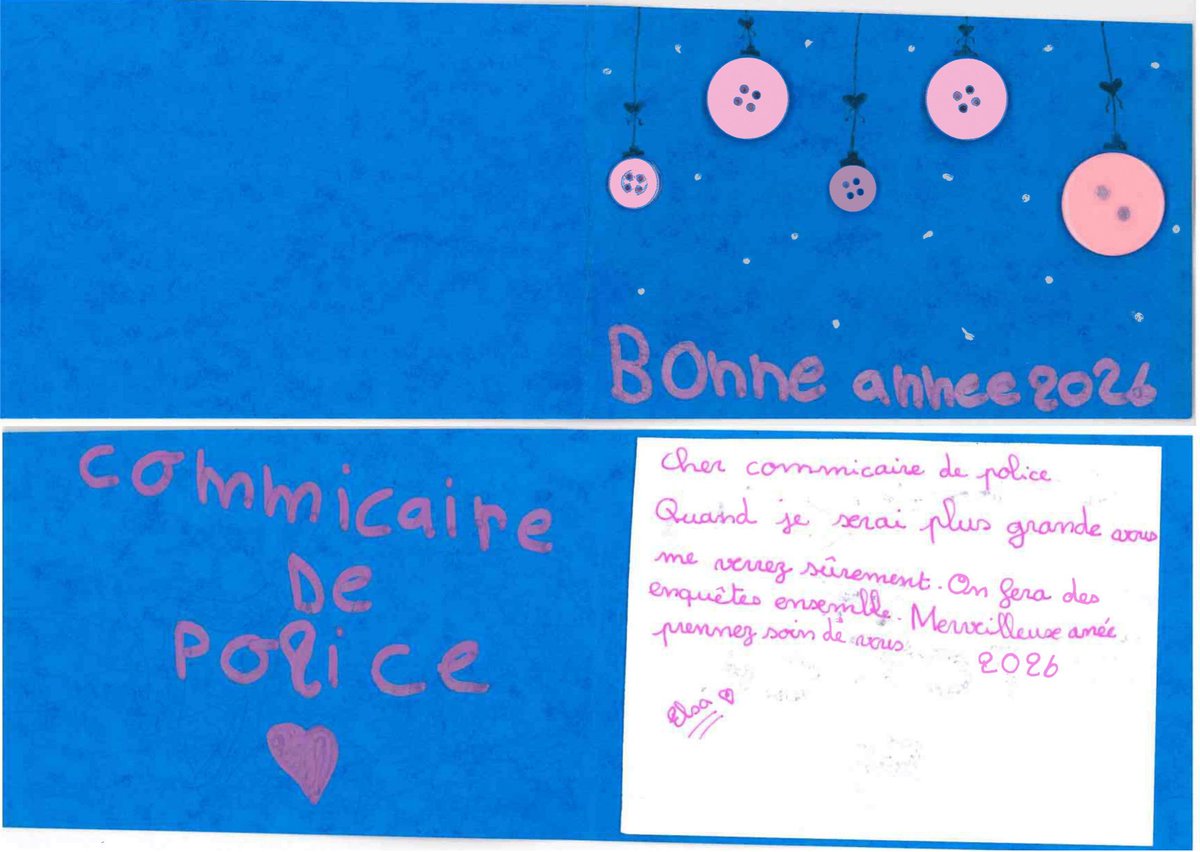 Bonne annee 2026
commicaire
De
Police
Cher commicaire de police
Quand je serai plus grande vous
me verrez sûrement. On fera des
enquêtes ensemble. Merveilleuse anée
prennez soin de vous
2026
Elsa